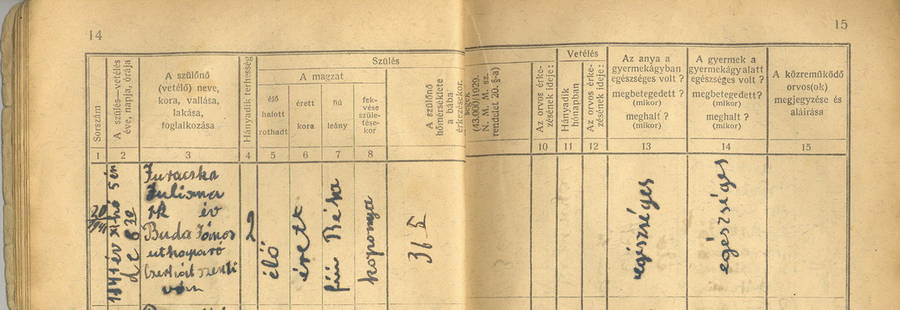 14
15
Sorszám
A szülés—vetélés
éve, napja, órája
A szülőnő
(vetélő) neve,
kora, vallása,
lakása,
foglalkozása
Hányadik terhesség
Szülés
A magzat
élő
halott
rothadt
érett
kora
fiú
leány
fek-
vése
szüle-
tése-
kor
A szülőnő
hőmérséklete
a bába
érkezésekor.
(43.000/1929.
N. M. M. sz.
rendelet 20. §-a)
Az orvos érke-
zésének ideje:
Vetélés
Hányadik
hónapban
Az orvos érke-
zésének ideje:
Az anya a
gyermekágyban
egészséges volt?
megbetegedett?
(mikor)
meghalt?
(mikor)
A gyermek a
gyermekágy alatt
egészséges volt?
megbetegedett?
(mikor)
meghalt?
(mikor)
A közreműködő
orvos(ok)
megjegyzése és
aláírása
1 2 3 4 5 6 7 8 10 11 12 13 14 15
20
1941 év
de 6 30
Furacska
Juliana
rk év
Buda János
2
élő
érett
fiú Béla
koponya
36 5
egészséges
egészséges